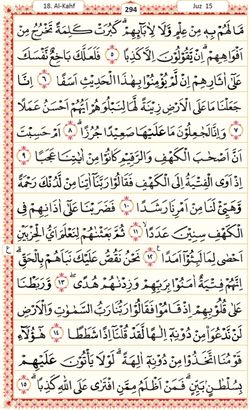 18. Al-Kahf 294 Juz 15
مَّا لَهُمْ بِهٖ مِنْ عِلْمٍ وَّلَا لِاٰبَاۤىِٕهِمْۗ كَبُرَتْ كَلِمَةً تَخْرُجُ مِنْ
اَفْوَاهِهِمْۗ اِنْ يَّقُوْلُوْنَ اِلَّا كَذِبًا ٥ فَلَعَلَّكَ بَاخِعٌ نَّفْسَكَ
عَلٰٓى اٰثَارِهِمْ اِنْ لَّمْ يُؤْمِنُوْا بِهٰذَا الْحَدِيْثِ اَسَفًا ٦ اِنَّا
جَعَلْنَا مَا عَلَى الْاَرْضِ زِيْنَةً لَّهَا لِنَبْلُوَهُمْ اَيُّهُمْ اَحْسَنُ عَمَلًا
٧ وَاِنَّا لَجٰعِلُوْنَ مَا عَلَيْهَا صَعِيْدًا جُرُزًاۗ ٨ اَمْ حَسِبْتَ
اَنَّ اَصْحٰبَ الْكَهْفِ وَالرَّقِيْمِ كَانُوْا مِنْ اٰيٰتِنَا عَجَبًا ٩
اِذْ اَوَى الْفِتْيَةُ اِلَى الْكَهْفِ فَقَالُوْا رَبَّنَآ اٰتِنَا مِنْ لَّدُنْكَ رَحْمَةً
وَّهَيِّئْ لَنَا مِنْ اَمْرِنَا رَشَدًا ١٠ فَضَرَبْنَا عَلٰٓى اٰذَانِهِمْ فِى
الْكَهْفِ سِنِيْنَ عَدَدًاۙ ١١ ثُمَّ بَعَثْنٰهُمْ لِنَعْلَمَ اَيُّ الْحِزْبَيْنِ
اَحْصٰى لِمَا لَبِثُوْٓا اَمَدًا ١٢ نَحْنُ نَقُصُّ عَلَيْكَ نَبَاَهُمْ بِالْحَقِّۗ
اِنَّهُمْ فِتْيَةٌ اٰمَنُوْا بِرَبِّهِمْ وَزِدْنٰهُمْ هُدًىۖ ١٣ وَّرَبَطْنَا
عَلٰى قُلُوْبِهِمْ اِذْ قَامُوْا فَقَالُوْا رَبُّنَا رَبُّ السَّمٰوٰتِ وَالْاَرْضِ
لَنْ نَّدْعُوَا۟ مِنْ دُوْنِهٖٓ اِلٰهًا لَّقَدْ قُلْنَآ اِذًا شَطَطًا ١٤ هٰٓؤُلَاۤءِ
قَوْمُنَا اتَّخَذُوْا مِنْ دُوْنِهٖٓ اٰلِهَةًۗ لَوْلَا يَأْتُوْنَ عَلَيْهِمْ
بِسُلْطٰنٍۢ بَيِّنٍۗ فَمَنْ اَظْلَمُ مِمَّنِ افْتَرٰى عَلَى اللّٰهِ كَذِبًاۗ ١٥